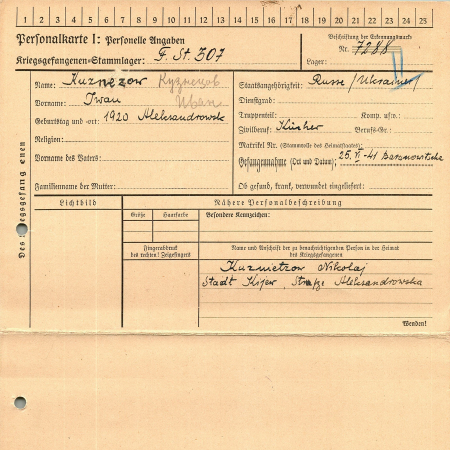 1 2 3 4 5 6 7 8 9 10 11 12 13 14 15 16 17 18 19 20 21 22 23 24 25
Personalkarte I: Personelle Angaben
Kriegsgefangenen-Stammlager: F. St. 307
Beschriftung der Erkennungsmarke
Nr. 7288
Lager:
Des Kriegsgefangenen
Name: Kuznezow Кузнецов
Vorname: Iwan Иван
Geburtstag und -ort: 1920 Aleksandrowsk
Religion:
Vorname des Vaters:
Familienname der Mutter:
Staatsangehörigkeit: Russe /Ukrainer/
Dienstgrad:
Truppenteil: Komp. usw.:
Zivilberuf: Berufs-Gr.:
Matrikel Nr. (Stammrolle des Heimatstaates):
Gefangennahme (Ort und Datum): 25. VI. 41 Baranowitsche
Ob gesund, krank, verwundet eingeliefert:
Lichtbild
Nähere Personalbeschreibung
Größe Haarfarbe Besondere Kennzeichen:
Fingerabdruck
des rechten! Zeigefingers
Name und Anschrift der zu benachrichtigenden Person in der Heimat
des Kriegsgefangenen
Kuznietzow Nikolaj
Stadt Kijew, Straße Aleksandrowska
Wenden!